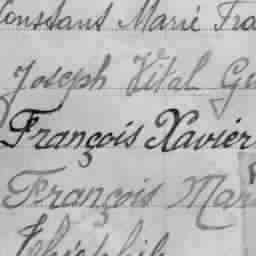 Constant Marie Fra
Joseph Vital Gu
François Xavier
François Mar
Théophile